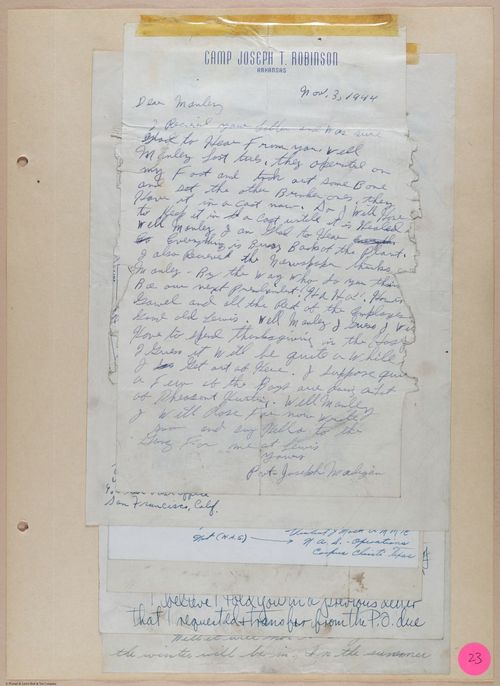 CAMP JOSEPH T. ROBINSON
ARKANSAS
Nov. 3, 1944
Dear Manley
I Received your letter and was sure
Glad to Hear From you. Well
Manley Last tues, they operated on
my Foot and took out some Bone
and set the other Broken ones. they
Have it in a cast now. So I Will Have
to Keep it in a cast until it is Healed
Well Manley I am Glad to Hear
Everything is Busy Back at the Plant.
I also Received the Newspaper thanks,
Manley. By the Way Who do you think
Be our next President! Ha Ha!. How is
and all the Rest of the Employees
Lewis. Well Manley I Guess I Will
Have to spend thanksgiving in the Hosp
I Guess it Will be quite a While
I Get out of Here. I suppose quite
a Few of the Boys are out
Hunting. Well Manley
I Will Close For now
and say Hello to the
Gang For me at Lewis
Yours
Pvt. Joseph Madigan
San Francisco, Calif.
Net (N.A.S)
N.A.S. - Operations
Corpus Christi Texas
I believe I told you in a previous letter
that I requested transfer from the P.O. due
the winter will be in. In the summer
23